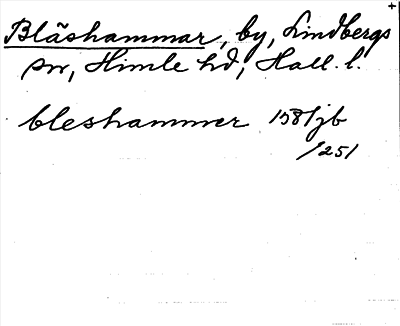 Blåshammar, by, Lindbergs
sn, Himle hd, Hall. l.
bleshammer 1581 jb
/251